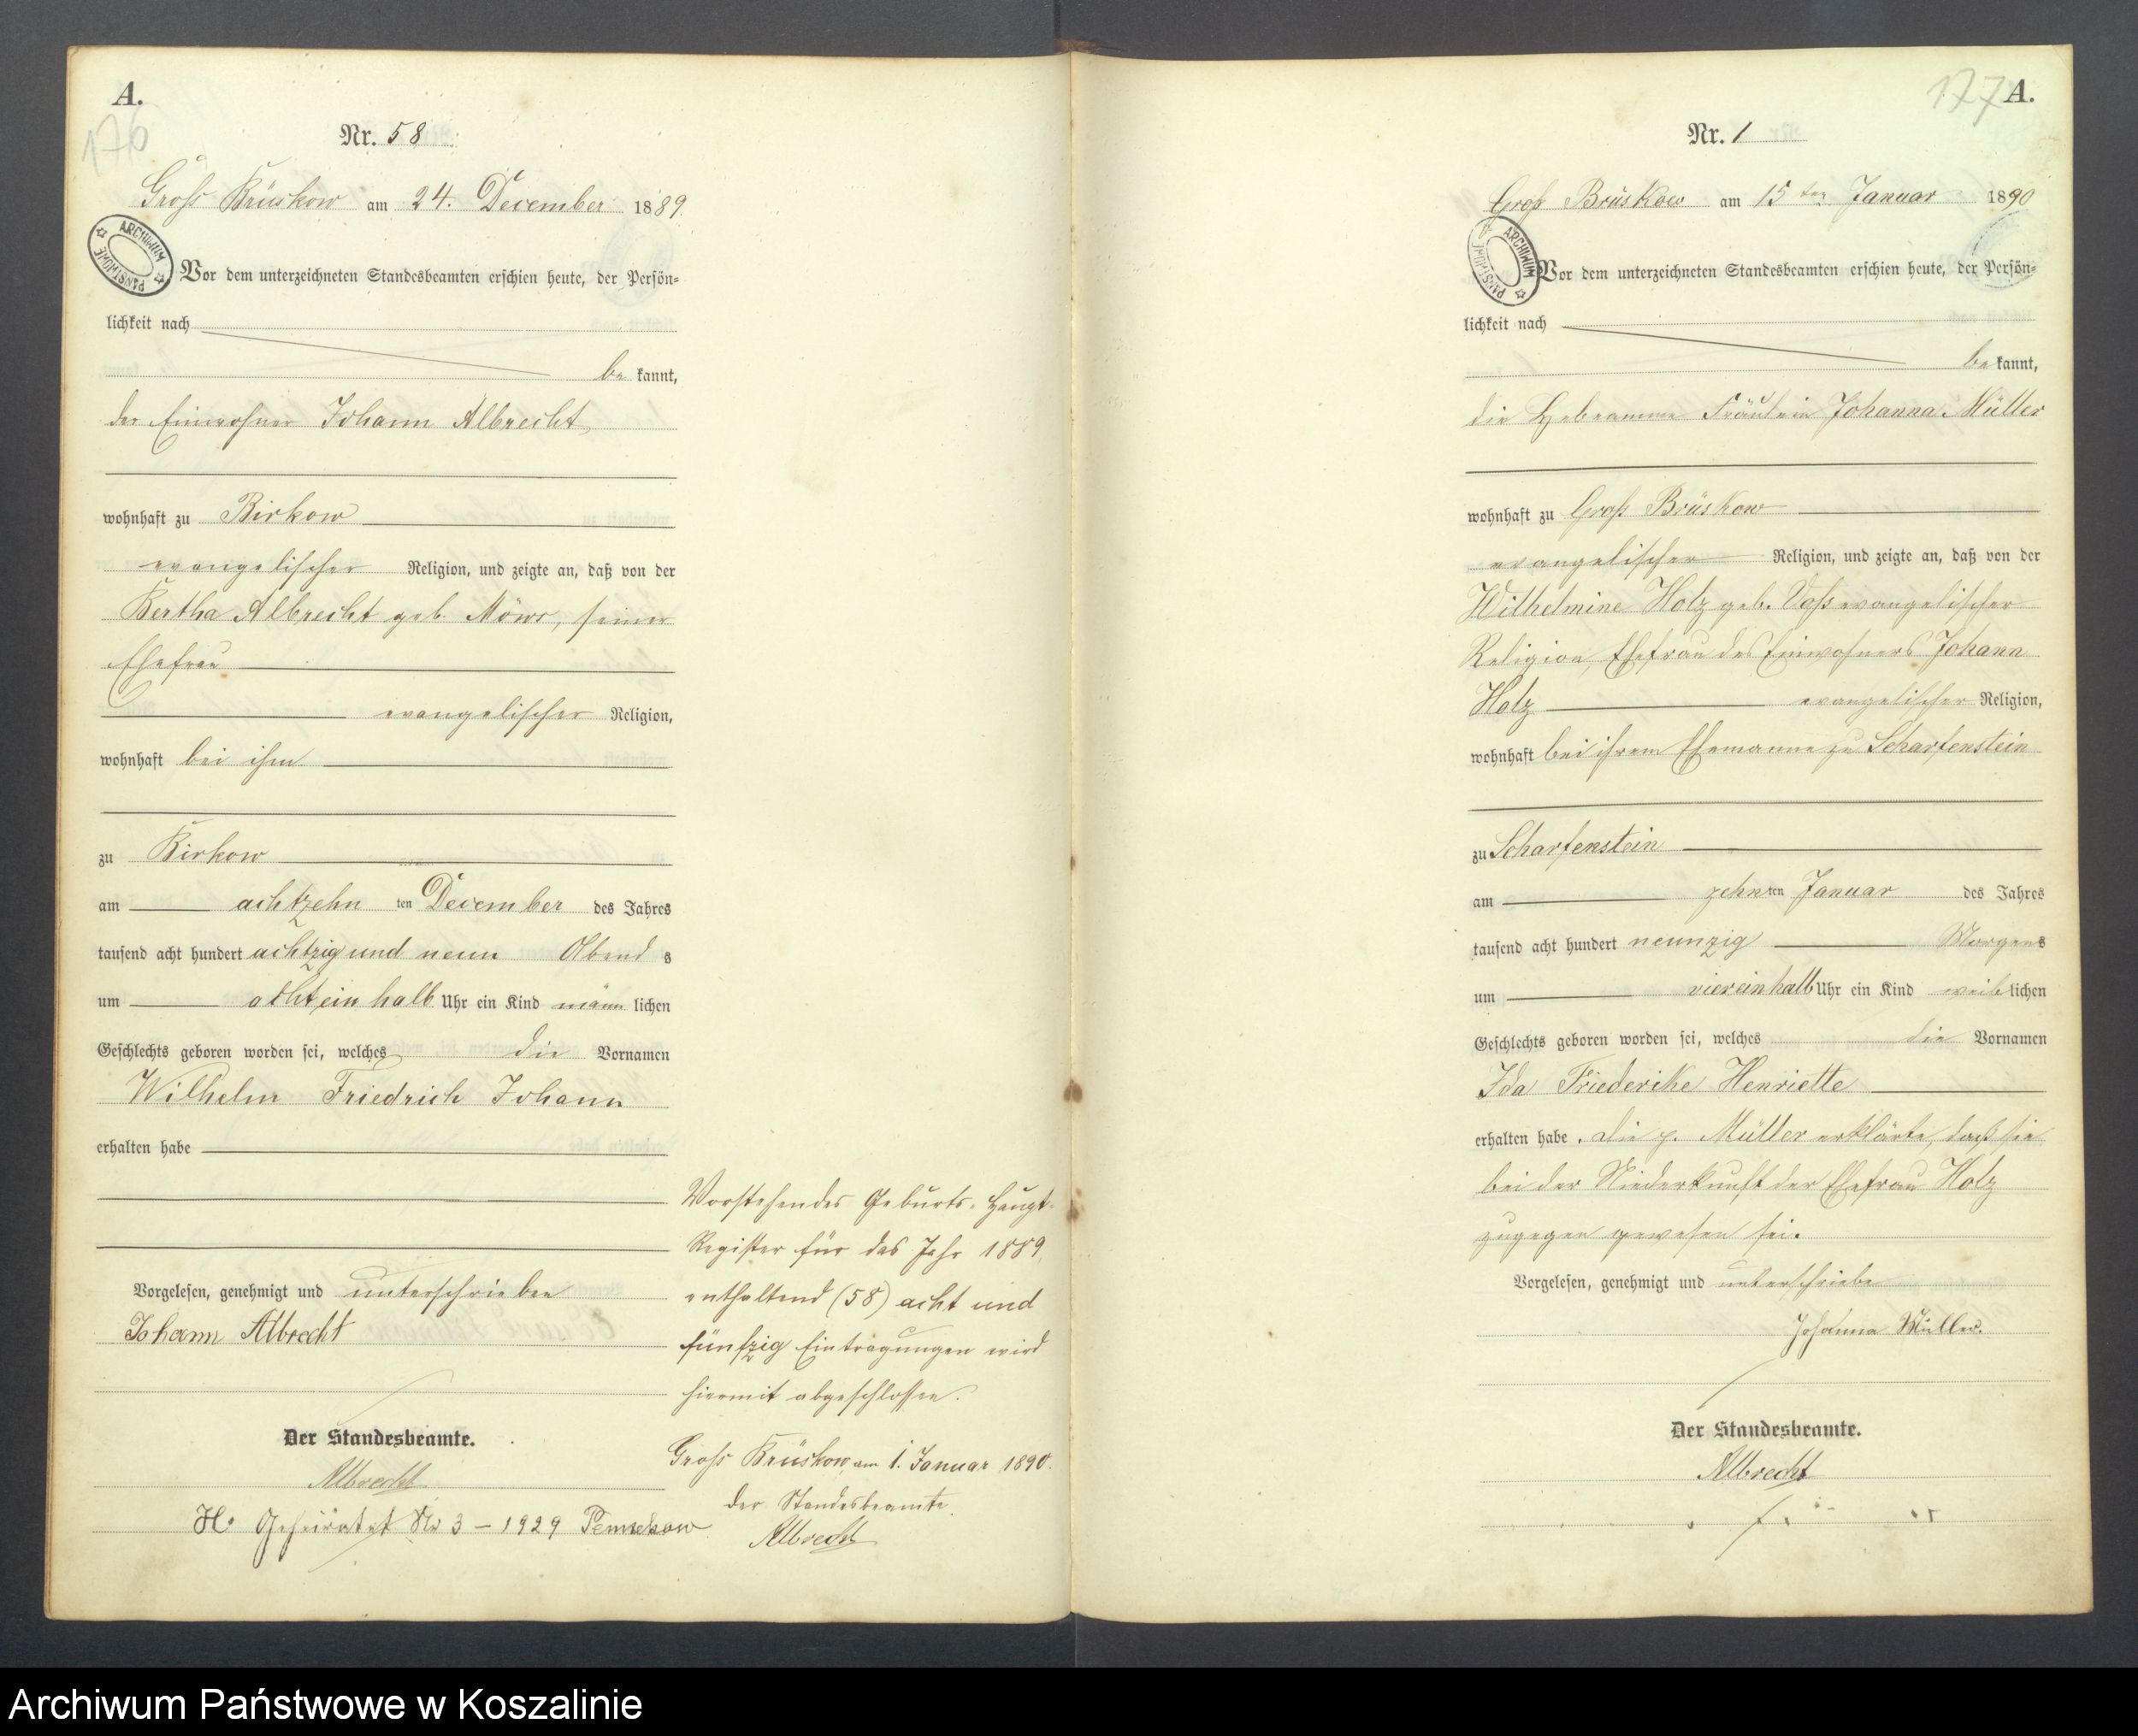 A.
176
Nr. 58
Gross Brüskow am 24. December 1889
ARCHIWUM PAŃSTWOWE
Vor dem unterzeichneten Standesbeamten erschien heute, der Persön=
lichkeit nach
be kannt,
der Einwohner Johann Albrecht
wohnhaft zu Birkow
evangelischer Religion, und zeigte an, daß von der
Bertha Albrecht geb. Möws, seiner
Ehefrau
evangelischer Religion,
wohnhaft bei ihm
zu Birkow
am achtzehn ten December des Jahres
tausend acht hundert achtzig und neun Abend s
um acht ein halb Uhr ein Kind männ lichen
Geschlechts geboren worden sei, welches die Vornamen
Wilhelm Friedrich Johann
erhalten habe
Vorgelesen, genehmigt und unterschrieben
Johann Albrecht
Der Standesbeamte.
Albrecht
H. Geheiratet Nr 3 – 1929
Vorstehendes Geburts-Haupt-
Register für das Jahr 1889,
enthaltend (58) acht und
fünfzig Eintragungen wird
hiermit abgeschlossen.
Gross Brüskow am 1. Januar 1890.
der Standesbeamte.
Albrecht
177 A.
Nr. 1
Groß Brüskow am 15ten Januar 1890
ARCHIWUM PAŃSTWOWE
Vor dem unterzeichneten Standesbeamten erschien heute, der Persön=
lichkeit nach
be kannt,
die Hebeamme Fräulein Johanna Müller
wohnhaft zu Groß Brüskow
evangelischer Religion, und zeigte an, daß von der
Wilhelmine Holz geb. Voß evangelischer
Religion, Ehefrau des Einwohners Johann
Holz evangelischer Religion,
wohnhaft bei ihrem Ehemanne zu Scharfenstein
zu Scharfenstein
am zehn ten Januar des Jahres
tausend acht hundert neunzig Morgens
um viereinhalb Uhr ein Kind weib lichen
Geschlechts geboren worden sei, welches die Vornamen
Ida Friederike Henriette
erhalten habe. Die p. Müller erklärte, daß sie
bei der Niederkunft der Ehefrau Holz
zugegen gewesen sei.
Vorgelesen, genehmigt und unterschrieben
Johanna Müller.
Der Standesbeamte.
Albrecht
Archiwum Państwowe w Koszalinie